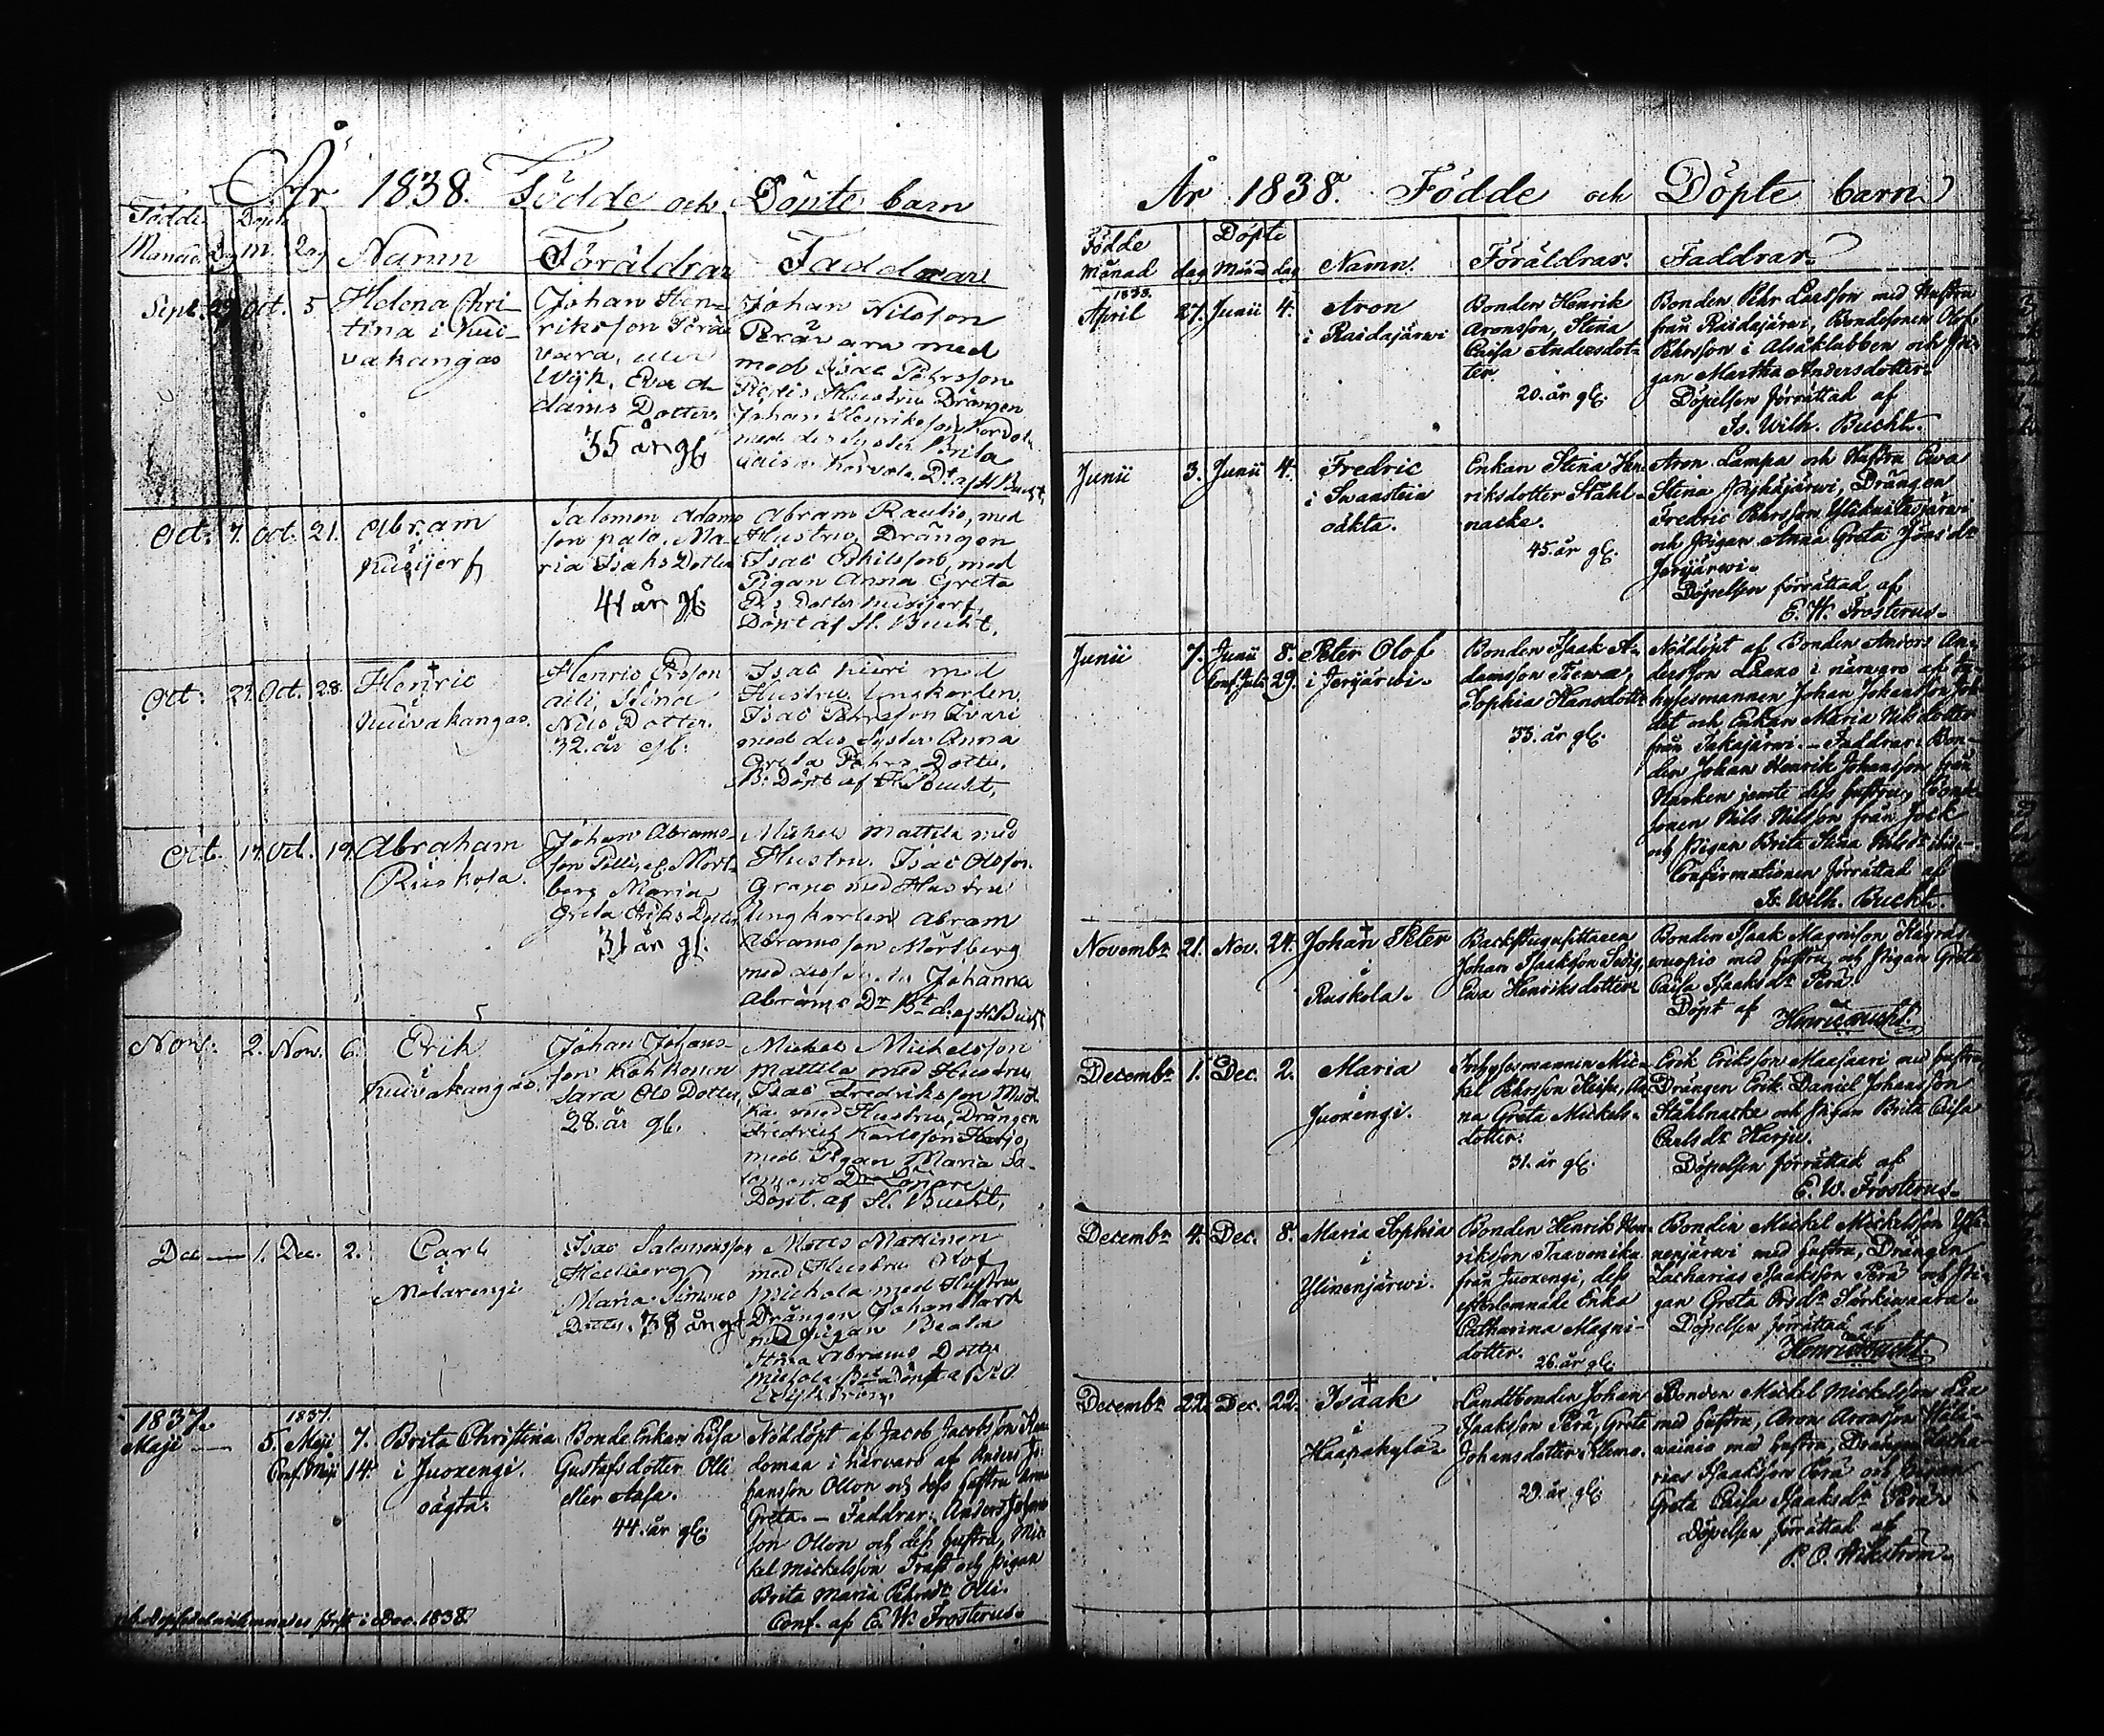 År 1838. Födde och Döpte barn
Födde Döpte
Månad Dag M. Dag Namn Föräldrar Faddrar
Sept. 29 Oct. 5 Helena Chri-
tina i Kui-
vakangas
Johan Hen-
riksson Perä
vara, eller
Wyk, Eva A
dams Dotter
35 år gl.
Johan Nilsson
Perävara med
med Isac Pehrsson
Hustru Drängen
Johan Henriksson
med des Syster Brita
Caisa D. af H. Bucht.
Oct. 7. Oct. 21. Abram
i
Kuijerf
Salomon Adams
son palo, Ma-
ria Isaks Dotter
41 år gl.
Abram Raudio, med
Hustru, Drängen
Isac Eskilsson, med
Pigan Anna Greta
Dotter
Döpt af H. Bucht.
Oct. 27. Oct. 28. Henric
i
Kuivakangas.
Henric Ersson
aili, Stina
Nils Dotter.
32. år gl.
Isac Kuri med
Hustru, Ungkarlen,
Isac Pehrsson Kvari
med des Syster Anna
Greta Pehrs Dotter,
Döpt af H. Bucht.
Oct. 17. Oct. 19. Abraham
i
Ruskola.
Johan Abrams-
son Pelli, el. Mört-
berg Maria
Greta Eriks Dotter
31 år gl.
Mickel Mattila med
Hustru. Isac Olsson
Grape med Hustru
Ungkarlen Abram
Abramsson Mörtberg
med Johanna
Abrams Dr. d. af H. Bucht
Nov. 2. Nov. 6. Erik
i
Kuivakangas.
Johan Johans-
son Kohkonen
Sara Ols Dotter,
28. år gl.
Mickel Mickelsson
Mattila med Hustru
Isac Fredriksson
med Hustru, Drängen
Fredrik Karlsson Harjo,
med Pigan Maria Sa-
lomons Dr
Döpt. af H. Bucht.
Dec — 1. Dec. 2. Carl
i
Matarengi
Isac Salomonsson
Hedberg
Maria Simons
Dotter. 38 år gl
Matts Mattinen
med Hustru Olof
Michola med Hustru
Drängen Johan
med Pigan Beata
Stina Abrams Dotter
Michola
1837. 1837.
Maji — 5. Maji 7. Brita Christina
Conf. Maji 14. i Juoxengi.
oägta.
Bonde Enkan Lisa
Gustafsdotter Olli
eller Asasa.
44. år gl.
Nöddöpt af Jacob Jacobsson
domaa i närvaro af Anders Jo-
hansson Ollon och dess hustru Anna
Greta. — Faddrar: Anders Johans
son Ollon och dess hustru, Mic-
kel Mickelsson Traft och Pigan
Brita Maria Pehrsdr. Olli.
Conf. af E. W. Frosterus.
först i Dec. 1838.
År 1838. Födde och Döpte barn
Födde Döpte
Månad dag Månad dag Namn. Föräldrar. Faddrar.
1838.
April 27. Junii 4. Aron
i Raidajärwi
Bonden Henrik
Aronsson, Stina
Caisa Andersdot-
ter.
20. år gl.
Bonden Pehr Larsson med Hustru
från Raidajärwi, Bondsonen Olof
Pehrsson i Alsåklubben och Pi-
gan Martha Andersdotter.
Döpelsen förrättad af
Is. Wilh. Bucht.
Junii 3. Junii 4. Fredric
i Swanstein
oäkta.
Enkan Stina Hen-
riksdotter Stähl-
nacke.
45. år gl.
Aron Lampa och Hustru Ewa
Stina Pojkäjärwi, Drängen
Fredric Pehrsson
och Pigan Anna Greta Jönsdr.
Jerijärwi.
Döpelsen förrättad af
E. W. Frosterus.
Junii 7. Junii 8. Peter Olof
Conf. Julii 29. i Jerijärwi.
Bonden Isaak A-
damsson Tiewa,
Sophia Hansdottr
33. år gl.
Nöddöpt af Bonden Anders An-
dersson Laaxo i närwaro af In-
hysesmannen Johan Johansson
och Enkan Maria Nilsdotter
från — Faddrar: Bon-
den Johan Henrik Johansson från
Narken jemte dess hustru, Bond-
sonen Nils Nilsson från Jock
och Pigan Brita Stina Nilsdr ibid. —
Confirmationen förrättad af
Is. Wilh. Bucht.
Novembr. 21. Nov. 24. Johan Peter
i
Ruskola.
Backstugusittaren
Johan Isaaksson Sedig,
Ewa Henriksdotter
Bonden Isaak Magnisson
med hustru, och Pigan Greta
Caisa Isaaksdr Perä.
Döpt af Henric Bucht.
Decembr. 1. Dec. 2. Maria
i
Juoxengi.
Inhysesmannen Mic-
kel Pehrsson An-
na Greta Mickels-
dotter.
31. år gl.
Erik Eriksson Maasaari med hustru,
Drängen Erik Daniel Johansson
Stählnacke och Pigan Brita Caisa
Carlsdr. Harju.
Döpelsen förrättad af
E. W. Frosterus.
Decembr. 4. Dec. 8. Maria Sophia
i
Ylinenjärwi.
Bonden Henrik Hen-
riksson Taavonika
från Juoxengi, dess
efterlemnade Enka
Catharina Magni-
dotter. 26. år gl.
Bonden Mickel Mickelsson Yli-
nenjärwi med hustru, Drängen
Zacharias Isaaksson Perä och Pi-
gan Greta Ersdr. Särkiwaara.
Döpelsen förrättad af
Henric Bucht.
Decembr. 22. Dec. 22. Isaak
i
Haapakylä.
Landtbonden Johan
Isaaksson Perä, Greta
Johansdotter
29. år gl.
Bonden Mickel Mickelsson
med hustru, Aron Aronsson
med hustru, Drängen Zacha-
rias Isaaksson Perä och Pigan
Greta Caisa Isaaksdr. Perä.
Döpelsen förrättad af
P. O. Wikström.